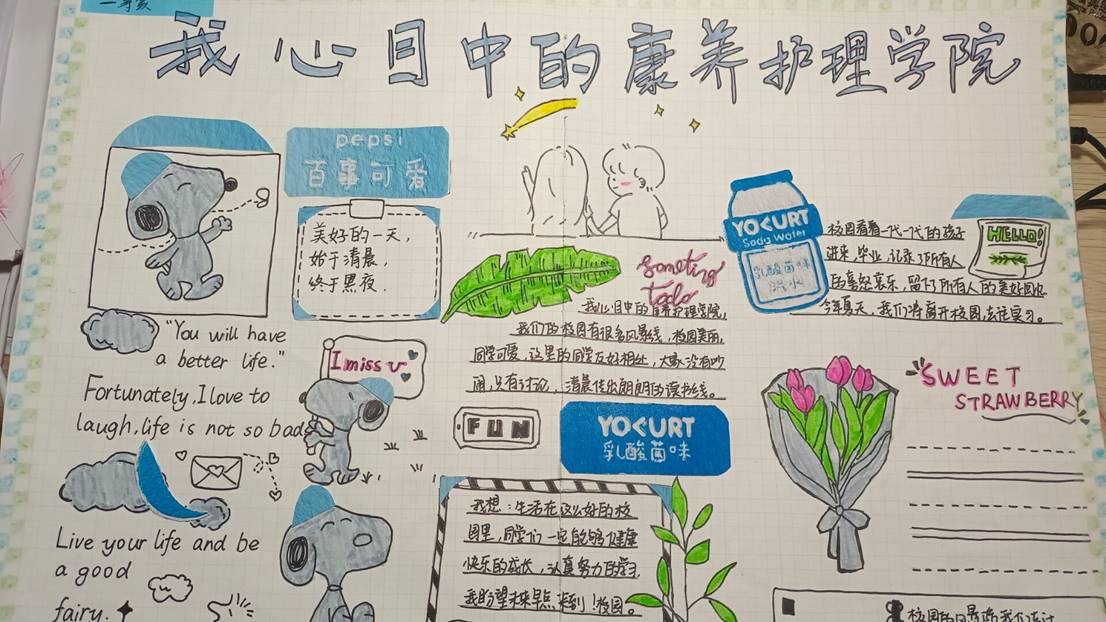 我心目中的康养护理学院
pepsi
百事可爱
美好的一天，
始于清晨，
终于黑夜．
"You will have
a better life."
Fortunately, I love to
laugh, life is not so bad
I miss u
Live your life and be
a good
fairy.
someting
todo
我心目中的康养护理学院，
我们的校园有很多风景线，校园美丽，
同学可爱，这里的同学友好相处，大家没有吵
闹，只有讨论，清晨传出朗朗的读书线。
FUN
YOGURT
乳酸菌味
我想：生活在这么好的校
园里，同学们一定能够健康
快乐的成长，认真努力的学习，
我盼望未来早点来到！校园。
YOGURT
Soda Water
乳酸菌味
汽水
校园看着一代一代的孩子
进来，毕业，记录了所有人
的喜怒哀乐，留下了所有人的美好回忆
今年夏天，我们将离开校园，去往实习。
HELLO!
SWEET
STRAWBERRY
校园的风景